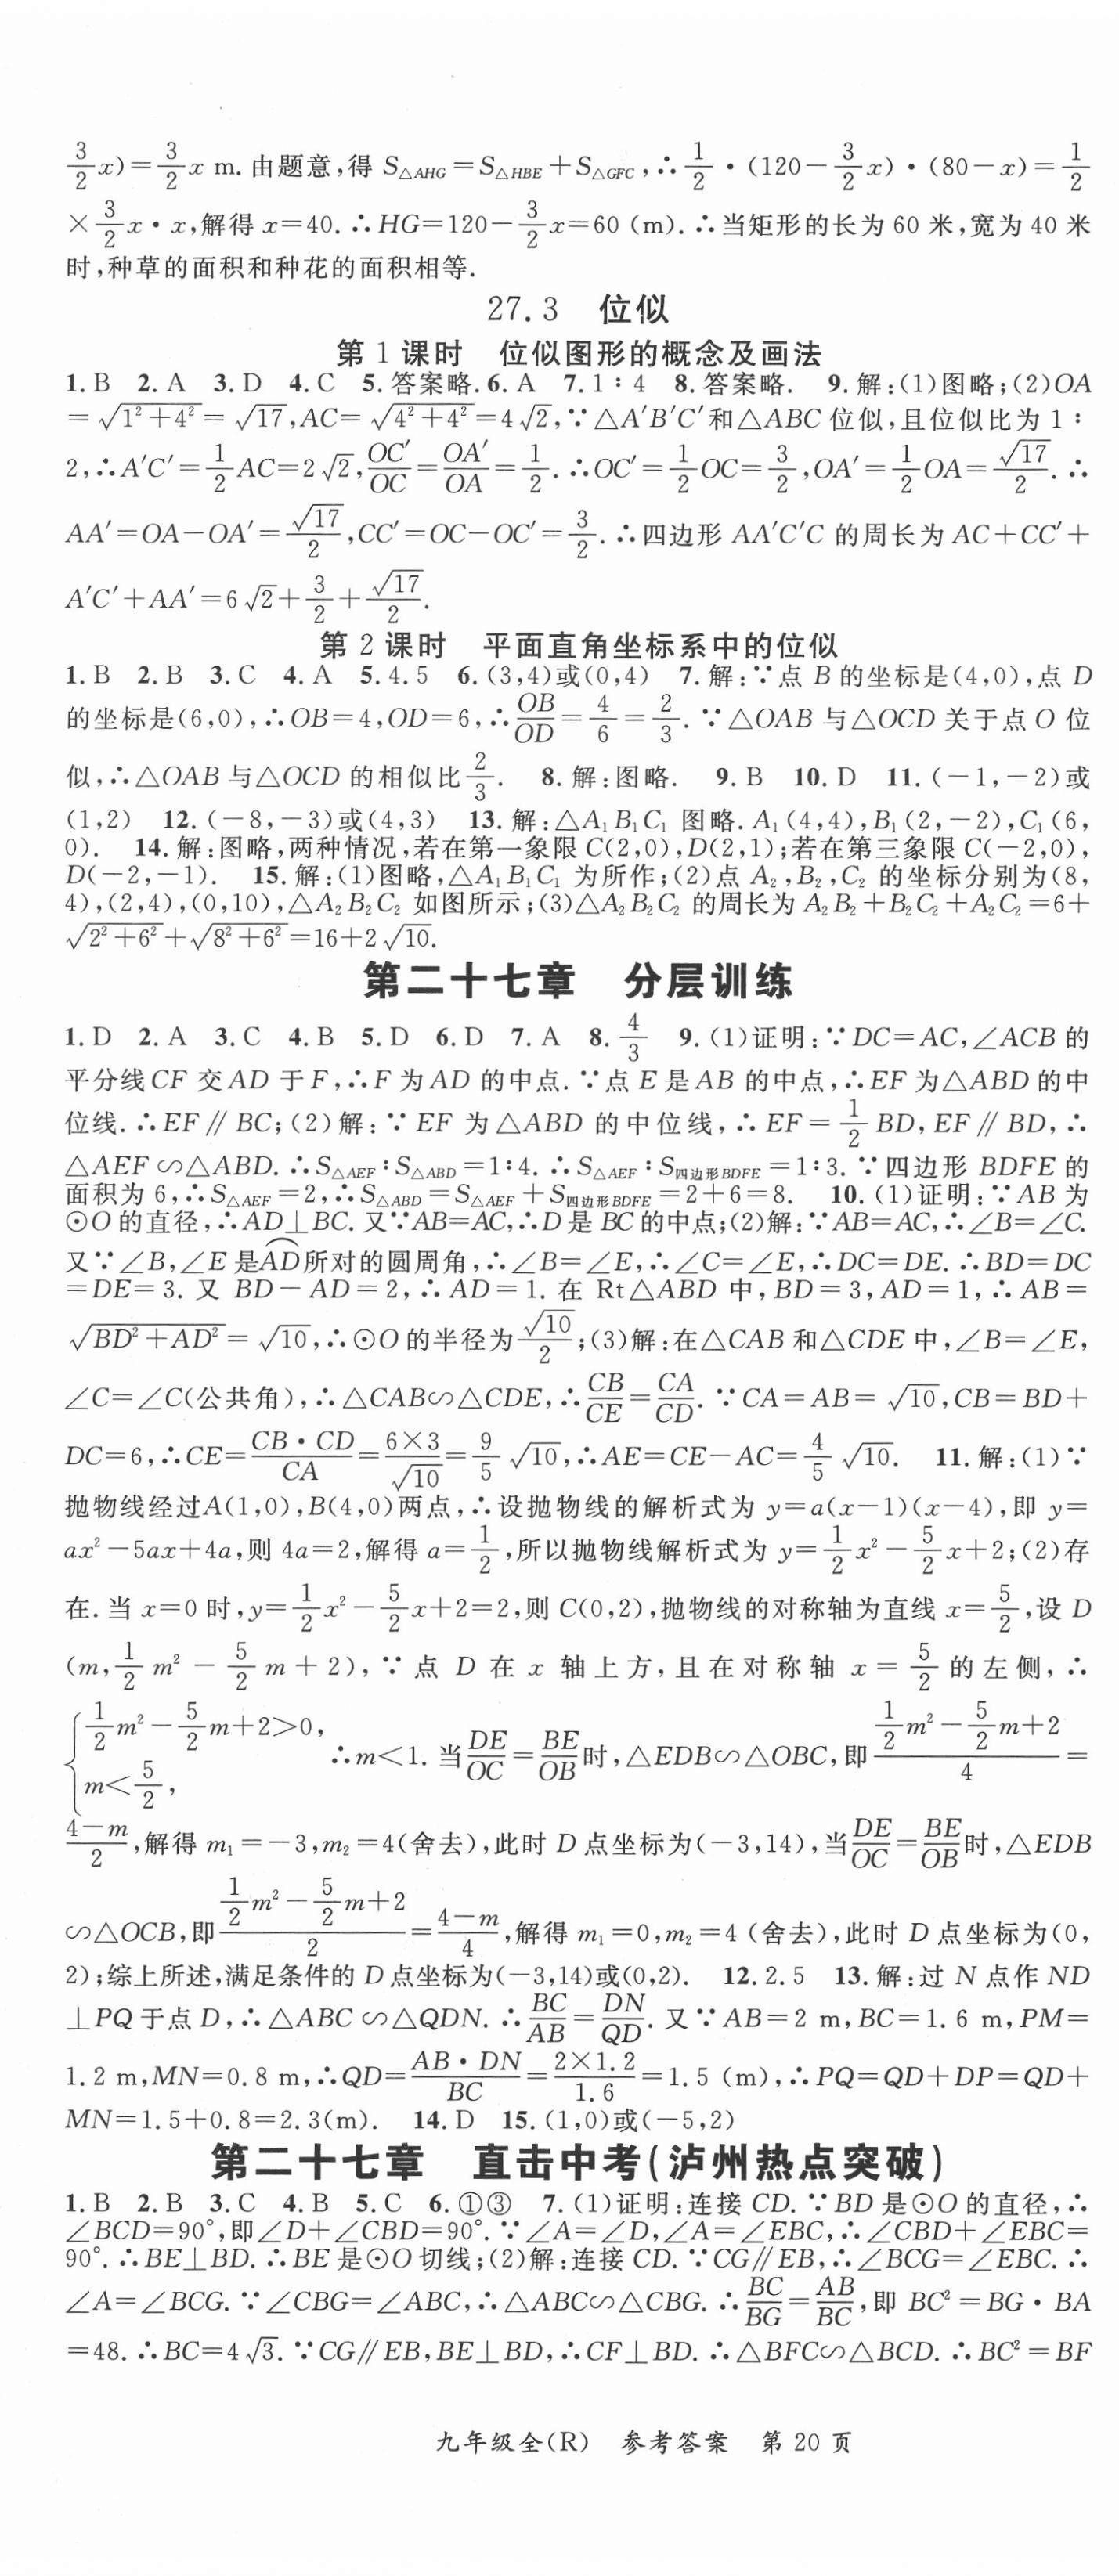 3/2x)=3/2x m. 由题意,得 S△AHG=S△HBE+S△GFC,∴1/2·(120-3/2x)·(80-x)=1/2
×3/2x·x,解得 x=40.∴HG=120-3/2x=60 (m).∴当矩形的长为 60 米,宽为 40 米
时,种草的面积和种花的面积相等.
27.3 位似
第 1 课时 位似图形的概念及画法
1.B 2.A 3.D 4.C 5.答案略.6.A 7.1∶4 8.答案略. 9.解:(1)图略;(2)OA
=√(1²+4²)=√17,AC=√(4²+4²)=4√2,∵△A′B′C′和△ABC 位似,且位似比为 1∶
2,∴A′C′=1/2AC=2√2,OC′/OC=OA′/OA=1/2.∴OC′=1/2OC=3/2,OA′=1/2OA=√17/2.∴
AA′=OA-OA′=√17/2,CC′=OC-OC′=3/2.∴四边形 AA′C′C 的周长为 AC+CC′+
A′C′+AA′=6√2+3/2+√17/2.
第 2 课时 平面直角坐标系中的位似
1.B 2.B 3.C 4.A 5.4.5 6.(3,4)或(0,4) 7.解:∵点 B 的坐标是(4,0),点 D
的坐标是(6,0),∴OB=4,OD=6,∴OB/OD=4/6=2/3.∵△OAB 与△OCD 关于点 O 位
似,∴△OAB 与△OCD 的相似比2/3. 8.解:图略. 9.B 10.D 11.(-1,-2)或
(1,2) 12.(-8,-3)或(4,3) 13.解:△A₁B₁C₁ 图略.A₁(4,4),B₁(2,-2),C₁(6,
0). 14.解:图略,两种情况,若在第一象限 C(2,0),D(2,1);若在第三象限 C(-2,0),
D(-2,-1). 15.解:(1)图略,△A₁B₁C₁ 为所作;(2)点 A₂,B₂,C₂ 的坐标分别为(8,
4),(2,4),(0,10),△A₂B₂C₂ 如图所示;(3)△A₂B₂C₂ 的周长为 A₂B₂+B₂C₂+A₂C₂=6+
√(2²+6²)+√(8²+6²)=16+2√10.
第二十七章 分层训练
1.D 2.A 3.C 4.B 5.D 6.D 7.A 8.4/3 9.(1)证明:∵DC=AC,∠ACB 的
平分线CF 交 AD 于 F,∴F 为 AD 的中点.∵点 E 是 AB 的中点,∴EF 为△ABD 的中
位线.∴EF∥BC;(2)解:∵EF 为△ABD 的中位线,∴EF=1/2BD,EF∥BD,∴
△AEF∽△ABD.∴S△AEF∶S△ABD=1∶4.∴S△AEF∶S四边形BDFE=1∶3.∵四边形 BDFE 的
面积为 6,∴S△AEF=2,∴S△ABD=S△AEF+S四边形BDFE=2+6=8. 10.(1)证明:∵AB 为
⊙O 的直径,∴AD⊥BC.又∵AB=AC,∴D 是 BC 的中点;(2)解:∵AB=AC,∴∠B=∠C.
又∵∠B,∠E 是⌒AD所对的圆周角,∴∠B=∠E,∴∠C=∠E,∴DC=DE.∴BD=DC
=DE=3. 又 BD-AD=2,∴AD=1. 在 Rt△ABD 中,BD=3,AD=1,∴AB=
√(BD²+AD²)=√10,∴⊙O 的半径为√10/2;(3)解:在△CAB 和△CDE 中,∠B=∠E,
∠C=∠C(公共角),∴△CAB∽△CDE,∴CB/CE=CA/CD.∵CA=AB=√10,CB=BD+
DC=6,∴CE=CB·CD/CA=6×3/√10=9/5√10,∴AE=CE-AC=4/5√10. 11.解:(1)∵
抛物线经过A(1,0),B(4,0)两点,∴设抛物线的解析式为 y=a(x-1)(x-4),即 y=
ax²-5ax+4a,则 4a=2,解得 a=1/2,所以抛物线解析式为 y=1/2x²-5/2x+2;(2)存
在.当 x=0 时,y=1/2x²-5/2x+2=2,则 C(0,2),抛物线的对称轴为直线 x=5/2,设 D
(m,1/2m²-5/2m+2),∵点 D 在 x 轴上方,且在对称轴 x=5/2 的左侧,∴
{1/2m²-5/2m+2>0, m<5/2, ∴m<1.当DE/OC=BE/OB时,△EDB∽△OBC,即(1/2m²-5/2m+2)/4=
(4-m)/2,解得 m₁=-3,m₂=4(舍去),此时 D 点坐标为(-3,14),当DE/OC=BE/OB时,△EDB
∽△OCB,即(1/2m²-5/2m+2)/2=(4-m)/4,解得 m₁=0,m₂=4 (舍去),此时 D 点坐标为(0,
2);综上所述,满足条件的 D 点坐标为(-3,14)或(0,2). 12.2.5 13.解:过 N 点作 ND
⊥PQ 于点 D,∴△ABC∽△QDN.∴BC/AB=DN/QD.又∵AB=2 m,BC=1.6 m,PM=
1.2 m,MN=0.8 m,∴QD=AB·DN/BC=2×1.2/1.6=1.5 (m),∴PQ=QD+DP=QD+
MN=1.5+0.8=2.3(m). 14.D 15.(1,0)或(-5,2)
第二十七章 直击中考(泸州热点突破)
1.B 2.B 3.C 4.B 5.C 6.①③ 7.(1)证明:连接 CD.∵BD 是⊙O 的直径,∴
∠BCD=90°,即∠D+∠CBD=90°.∵∠A=∠D,∠A=∠EBC,∴∠CBD+∠EBC=
90°.∴BE⊥BD.∴BE 是⊙O 切线;(2)解:连接 CD.∵CG∥EB,∴∠BCG=∠EBC.∴
∠A=∠BCG.∵∠CBG=∠ABC,∴△ABC∽△CBG.∴BC/BG=AB/BC,即 BC²=BG·BA
=48.∴BC=4√3.∵CG∥EB,BE⊥BD,∴CF⊥BD.∴△BFC∽△BCD.∴BC²=BF
九年级全(R) 参考答案 第 20 页